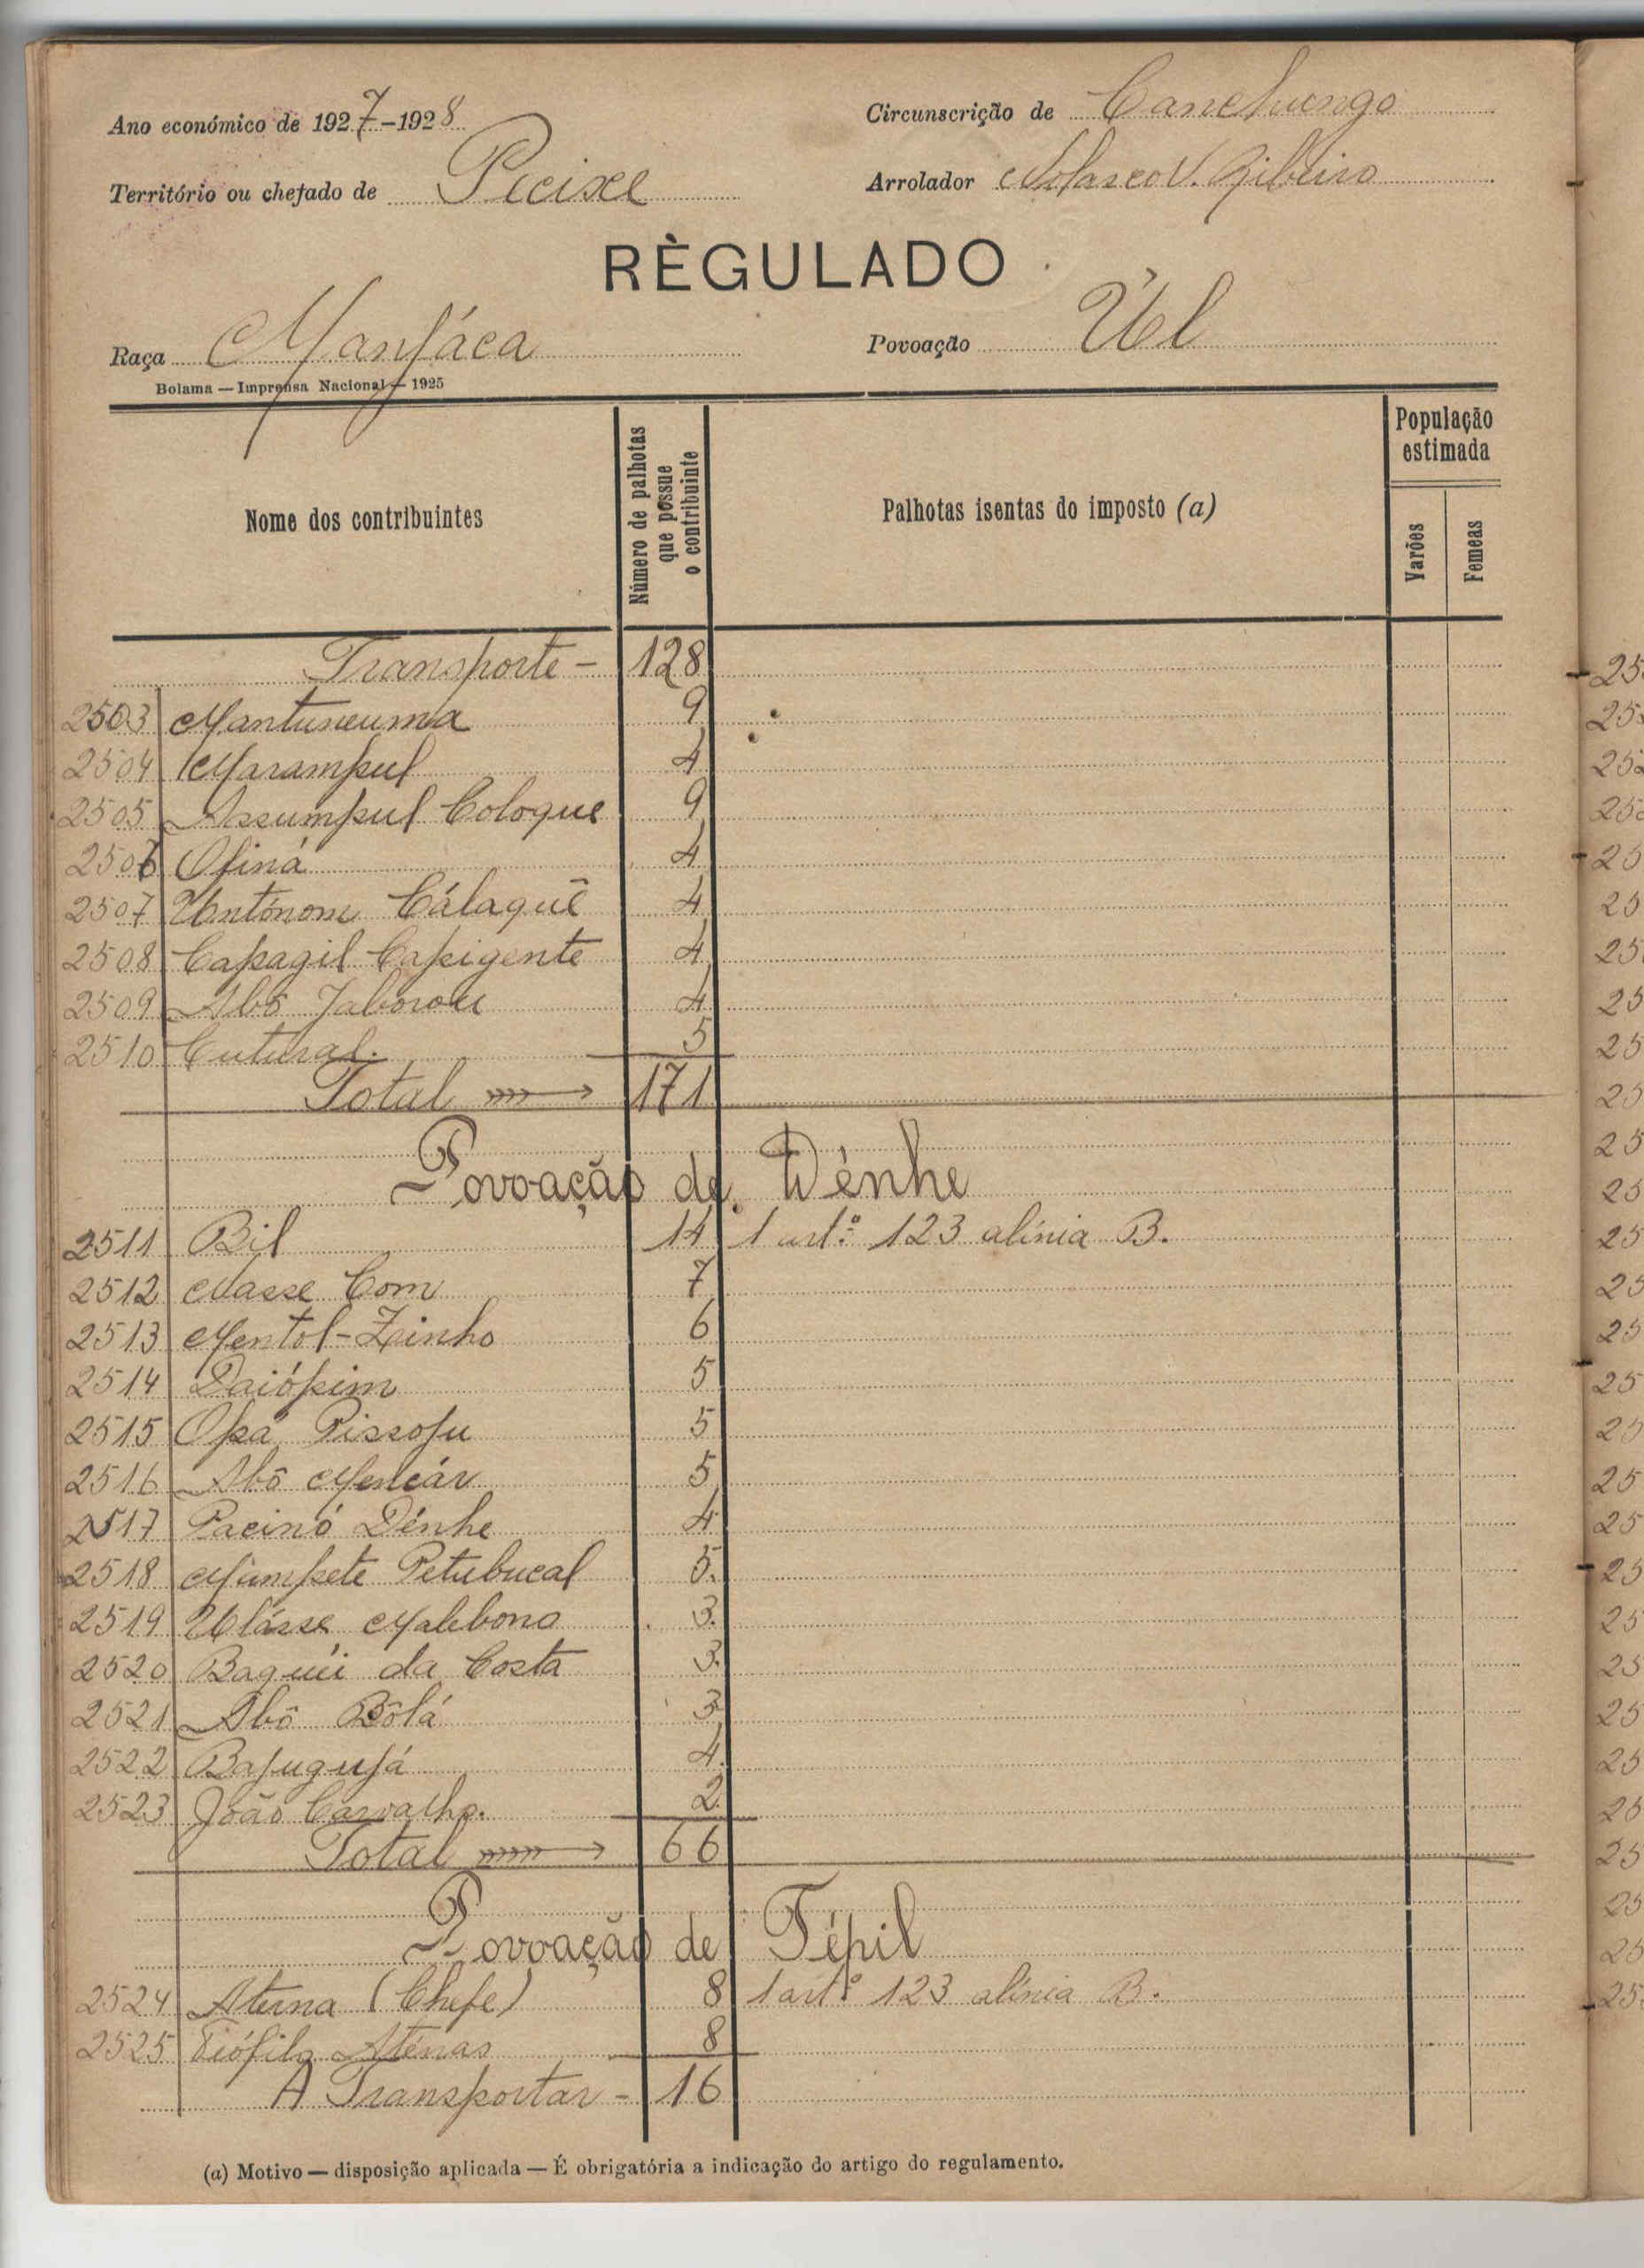 Ano económico de 1927-1928
Circunscrição de Canchungo
Território ou chefado de Pecixe
Arrolador Nolasco V. Ribeiro
RÈGULADO
Raça Manjáca
Povoação Uel
Bolama — Imprensa Nacional — 1925
Nome dos contribuintes
Número de palhotas que possue o contribuinte
Palhotas isentas do imposto (a)
População estimada
Varões
Femeas
Transporte - 128
2503 Mantuneuma 9
2504 Marampul 4
2505 Assumpul Coloque 9
2506 Ofiná 4
2507 Untónom Cálaquê 4
2508 Capagil Capigente 4
2509 Abô Jaborou 4
2510 Cutural. 5
Total 171
Povoação de Dênhe
2511 Bil 14 1 artº 123 alínia B.
2512 Nasse Com 7
2513 Mentol-Zinho 6
2514 Daiópim 5
2515 Opa Pissofu 5
2516 Abô Mencár 5
2517 Pacinó Dénhe 4
2518 Mumpete Petubucal 5.
2519 Ulásse Malebona 3.
2520 Baquéi da Costa 3.
2521 Abô Bôlá 3
2522 Bajugujá 4.
2523 João Carvalho. 2.
Total 66
Povoação de Tépil
2524 Aterna (Chefe) 8 1 artº 123 alínia B.
2525 Tiófilo Aténas 8
A Transportar - 16
(a) Motivo — disposição aplicada — É obrigatória a indicação do artigo do regulamento.